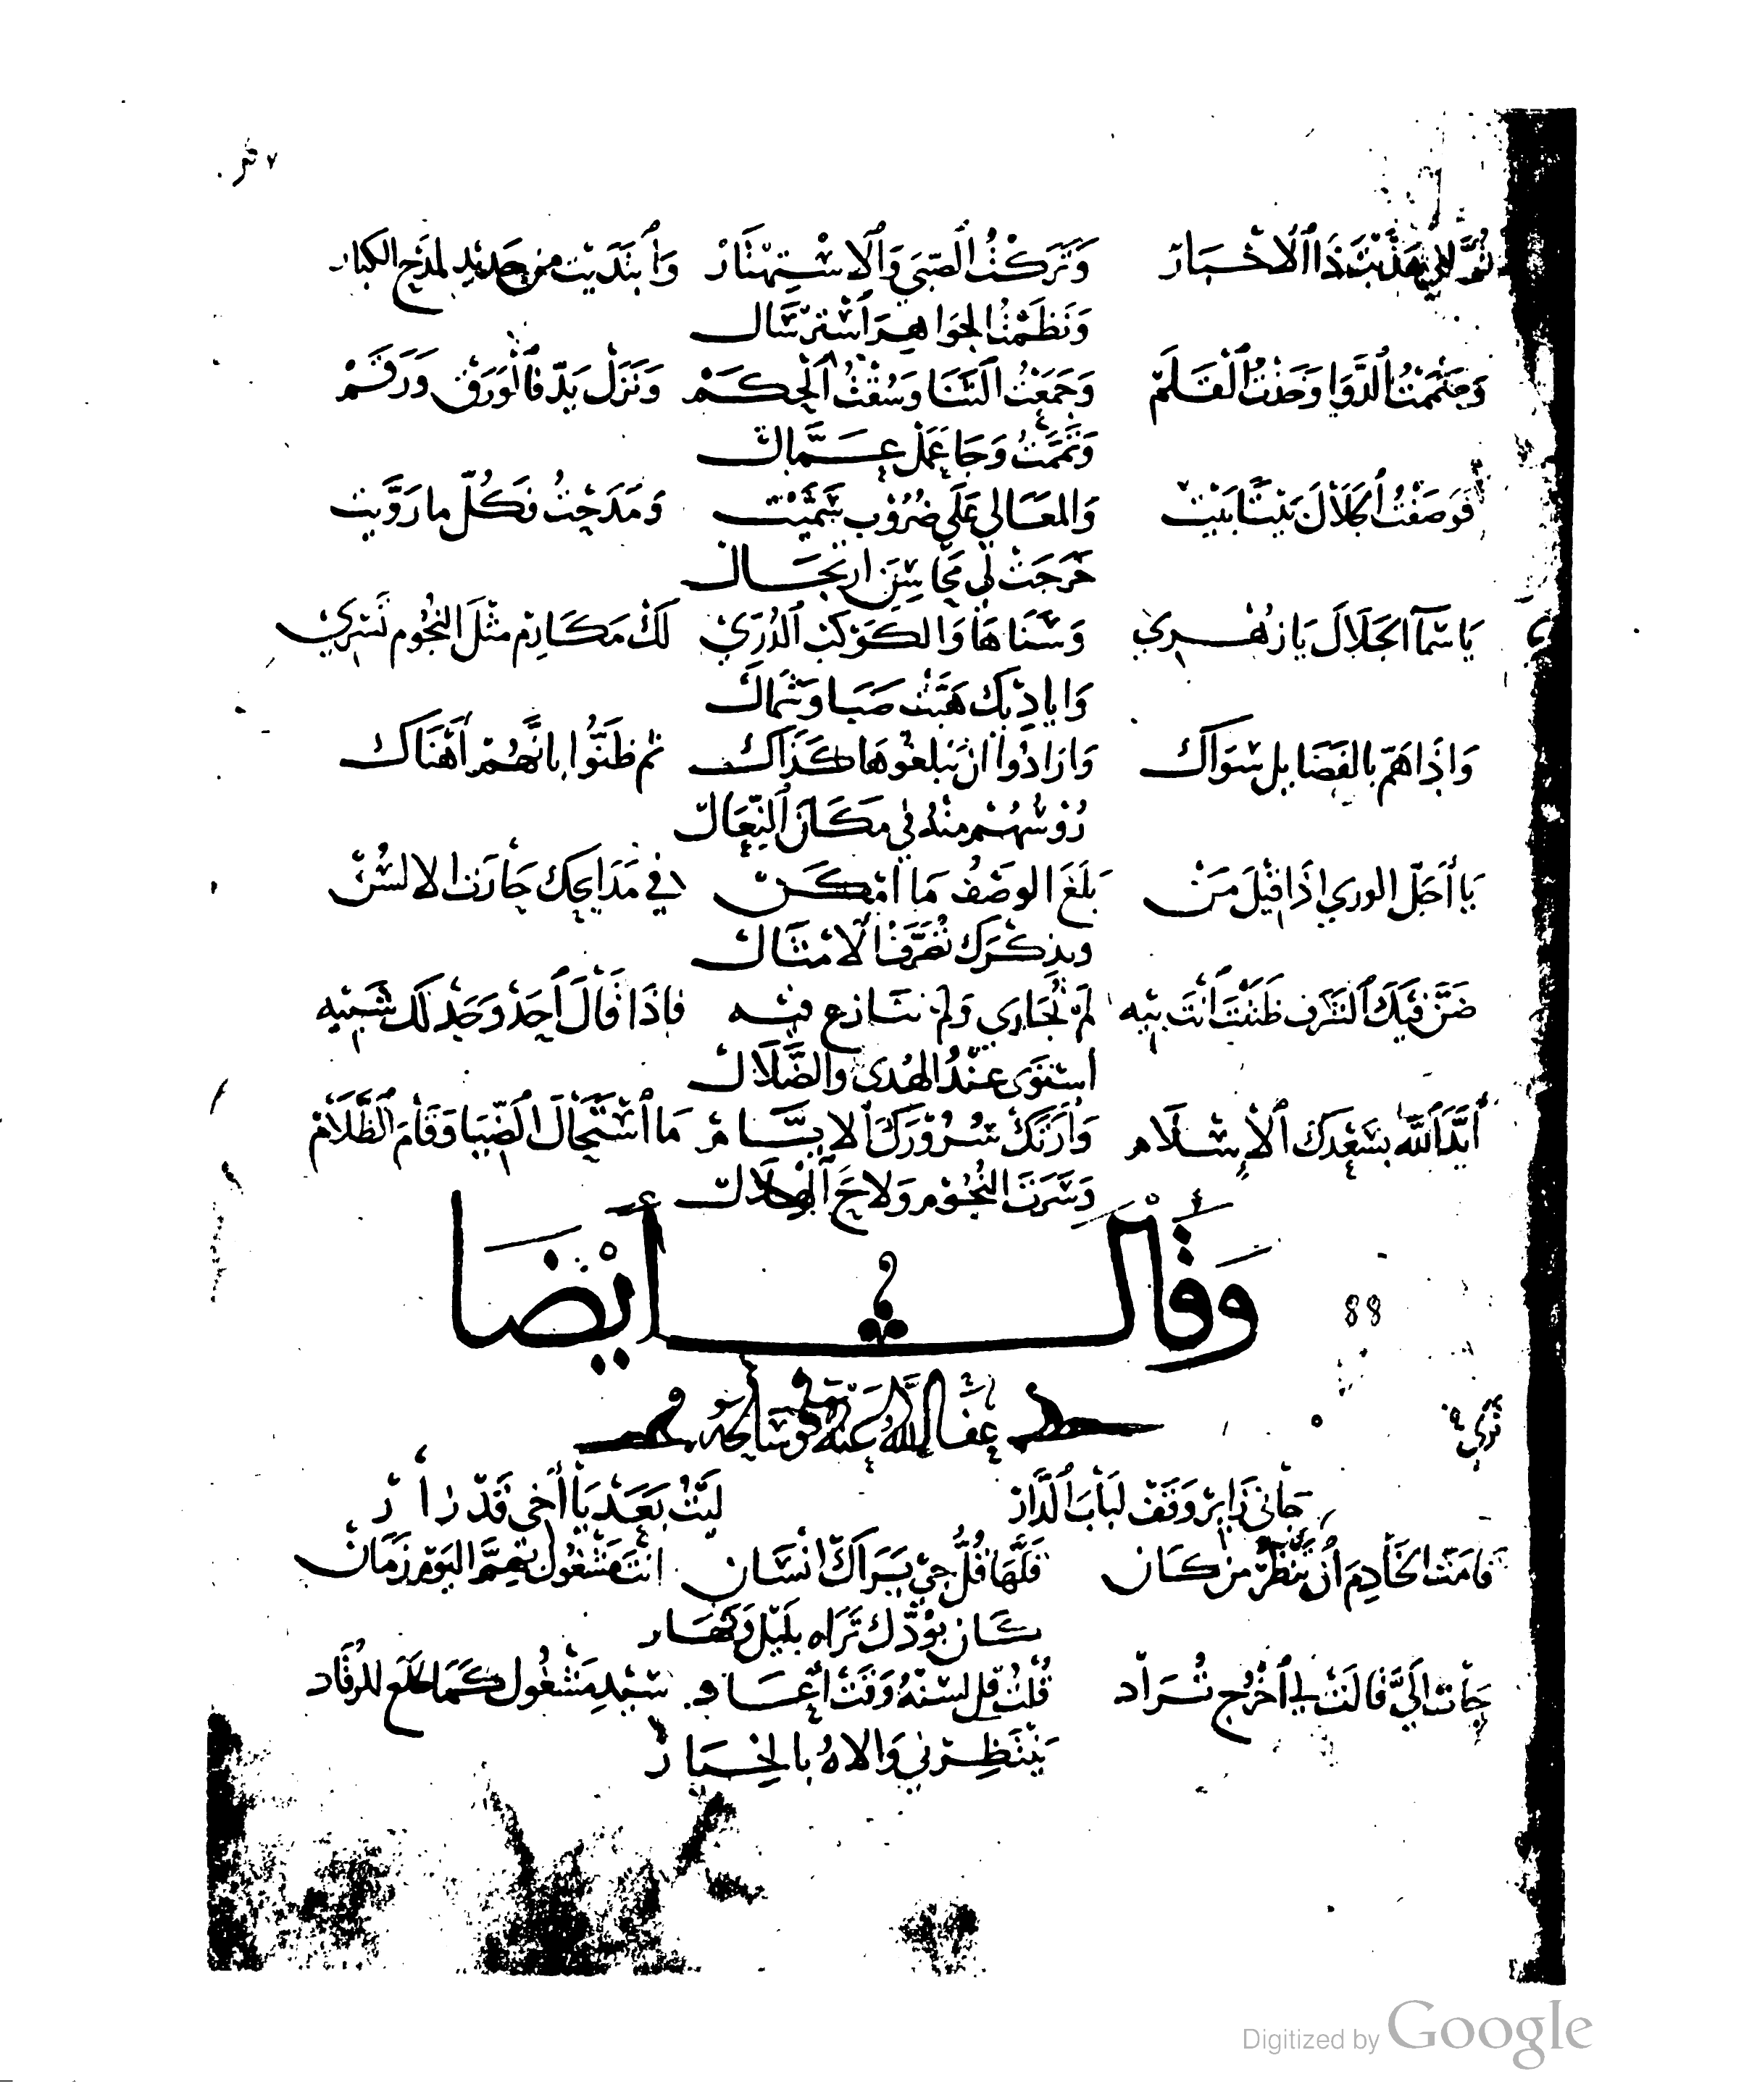 ثُمَّ لمّا هَذَّبْتُ ذَا اٱلْاخْبَارْ وَتَرَكْتُ الصِّبَى وَٱلِاسْتِهْتَارْ وَٱبْتَدَيْت من جَدِيد لمَدْح الكِبار
وَنَظَمْتُ الجَوَاهِر
وَجَمَعْتُ الثَنَا وَسُقْتُ ٱلْحِكَمْ وَنَزَلْ يَدِّ فَالْوَرَقْ وَرَقَمْ
وَتَمَّمَتْ وَجَا عَمَل عَمَّال
فَوَصَفْتُ الجَلَالَ بَيْتًا بَيْت وَالمَعَالِي عَلَى ضُرُوب سَمَّيْت وَمَدَحْتُ فَكُلّ ما رَوَّيت
خَرَجَتْ لي مَحَاسِنَ ارتجَال
يَا سَمَآ الجَلَالَ يَا زُهْرِي وَسَنَاهَا وَالكَوْكَبْ ٱلدُرّي لَكْ مَكَارِم مثْلَ النُجُوم تَسْرِي
وَايادِيك هَبَّتْ صَبَا وشَمَال
وَاذَا هَمّ بالفَضَايل سَوَاك وَارَادُوا انْ يَبْلغُوهَا كَذَاك ثم ظَنُّوا بانَّهُمْ أهْنَاك
رُوسُهُمْ منهُ في مَكَانَ ٱلنِّعَال
يَا أجَلّ الوري اذَا قِيْلَ مَنْ بَلَغَ الوصْفُ مَا امْكَنْ في مَدَايحك حَارَت الالسُنْ
وبذكْرَك تُعَرَّفْ ٱلامْثَال
ضَنَّ فِيكَ ٱلشَرَف ظَنَنْتَ أنْتَ بِيْه لَمْ تُجَارِي وَلَمْ تنَازع فيْه فاذَا قَالَ أحَدْ وَجَدْ لَكْ شَبِيْه
اسْتَوَى عنْدُ الهُدى والضَّلَال
أيَّدَ ٱللّه بسَعْدِكَ ٱلْإسْلَام وَارَتكْ سُرُورَكَ ٱلايَّامْ مَا ٱسْتَحَالَ ٱلضّيَا وَقَامَ ٱلظَّلَامْ
وَسَرَتِ النُجُوْم وَلَاحَ ٱلْهِلَال
وَقَالَ أيْضًا
88
عفا اللّه عنه وسامحه
جَانى زَاير وَقَفْ لبَاب ٱلدَّارْ لَيْتُ بَعَدْ يَا أخى قَدْ زَارْ
قامَت الخَادِم أنْ تَنْظُرْ من كَان قلَّهَا قُلّ جي يَرَاك انْسَان انْتَ مَشْغُول بقمَّ اليَوْم زَمَان
كَان بوُدَّك تَرَاه بلَيْل وَنَهَار
جَات الَيَّ قَالَتْ لي ٱخْرُج تُرَاد قُلتُ قل لسْتَهُ وَقتْ سَيِّدِ مَشْغُول كَمَا طَلَع للرُقَاد
يَنْتَظِرْني وَالاهُ بالخِيَار
Digitized by Google